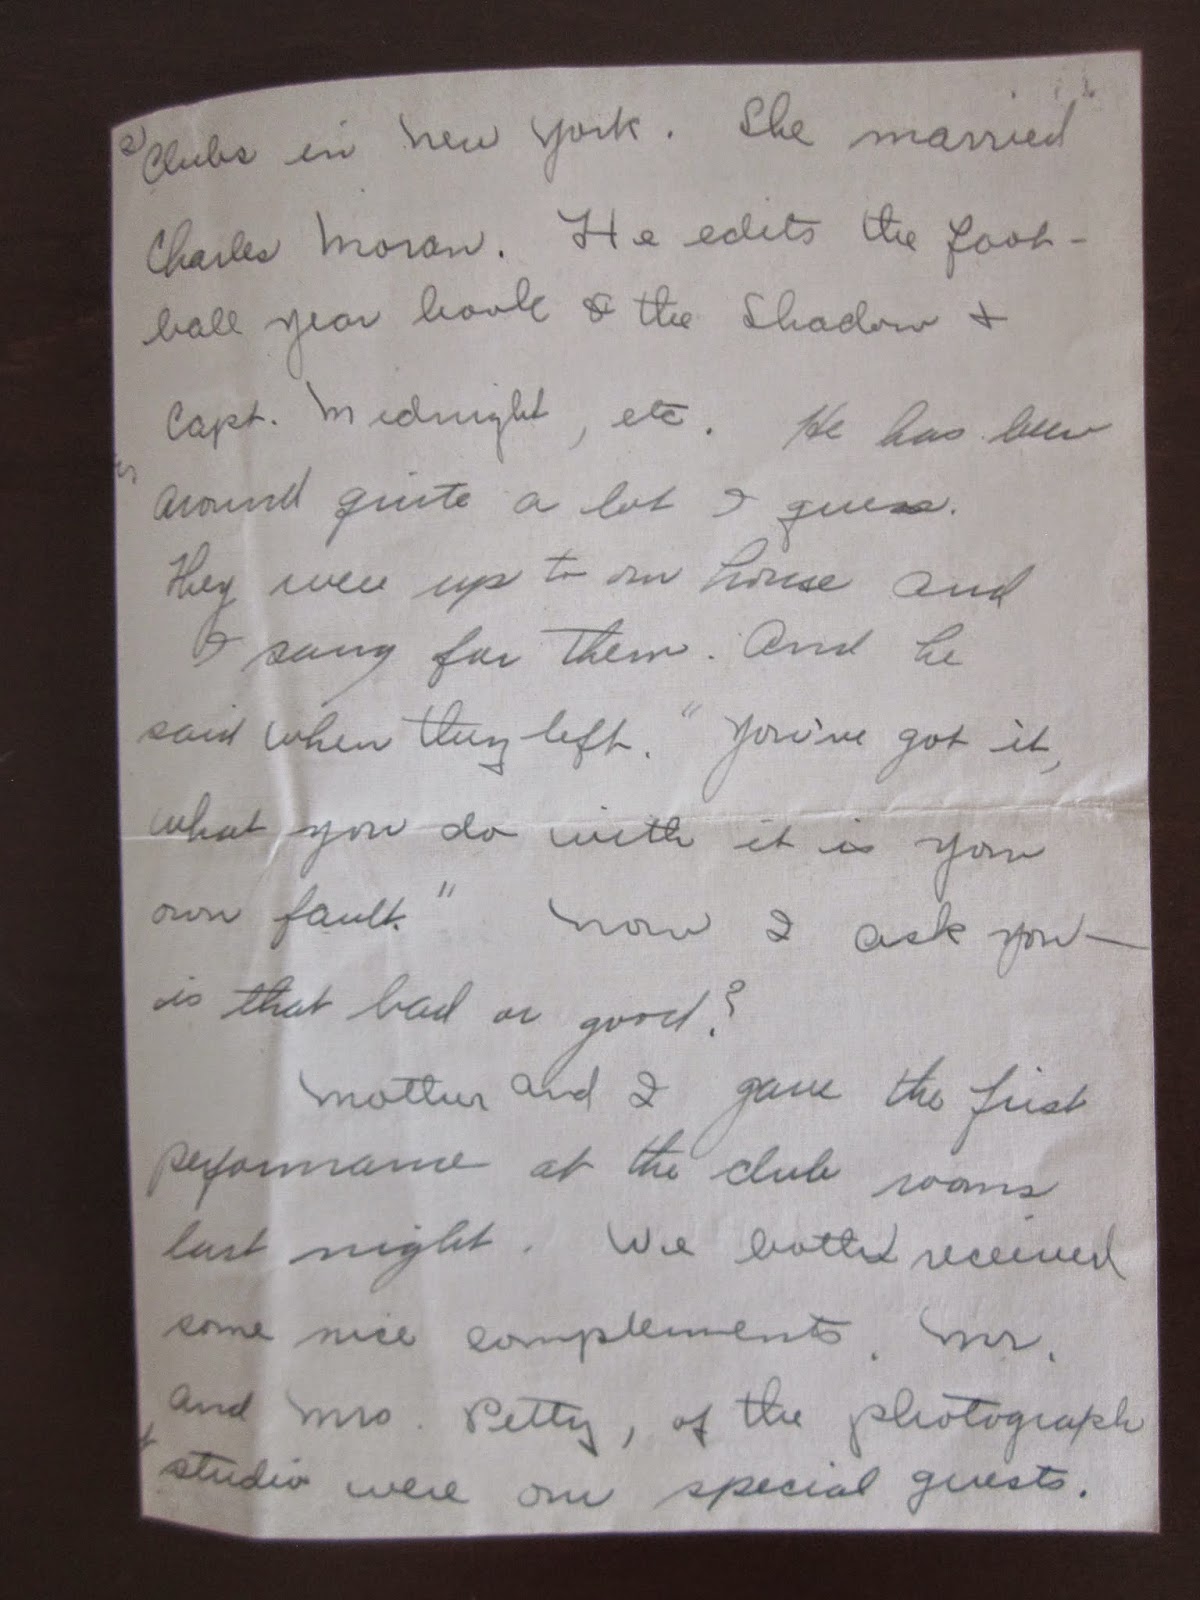 Clubs in New York. She married
Charles Moran. He edits the foot-
ball year book & the Shadow &
Capt. Midnight, etc. He has been
around quite a lot I guess.
They were up to our house and
I sang for them. And he
said when they left. "You've got it,
what you do with it is your
own fault." Now I ask you—
is that bad or good?
Mother and I gave the first
performance at the club rooms
last night. We both received
some nice complements. Mr.
and Mrs. Petty, of the photograph
studio were our special guests.